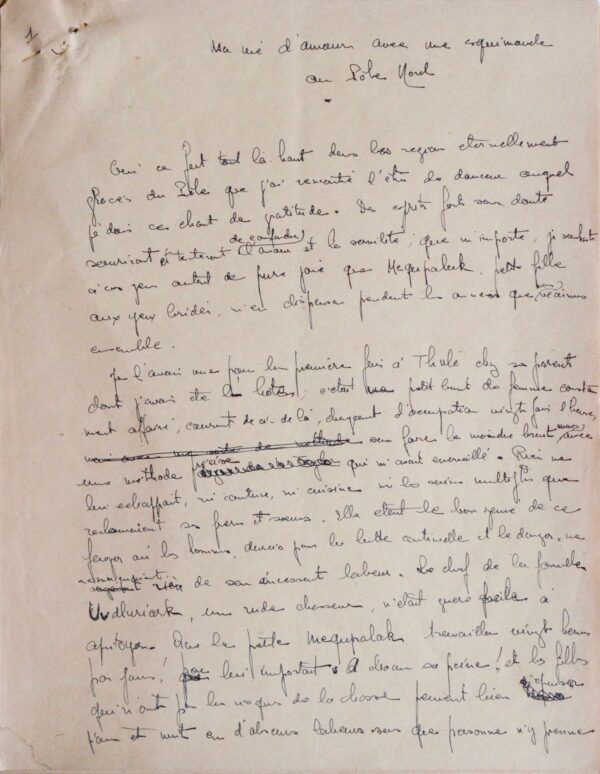 1
Ma vie d'amour avec une esquimaude
au Pôle Nord
Oui ce fut tout là-haut dans les régions éternellement
glacées du Pôle que j'ai rencontré l'être de douceur auquel
je dois ces chant de gratitude. Des esprits forts sans doute
souriront et tenteront de confondre l'amour et la sénilité; que m'importe, je souhaite
à ces gens autant de pure joie que Mequpaluk, petite fille
aux yeux bridés, m'en dispensa pendant les années que nous vécûmes
ensemble.
Je l'avais vue pour la première fois à Thulé chez ses parents
dont j'avais été l'hôte; c'était un petit bout de femme constam
ment affairé, courant de ci-de là, changeant d'occupation vingt fois l'heure,
sans faire le moindre bruit, mais avec
une méthode précise qui m'avait émerveillé. Rien ne
lui échappait, ni couture, ni cuisine ni les soins multiples que
réclamaient ses frères et soeurs. Elle était le bon génie de ce
foyer où les hommes, durcis par la lutte continuelle et le danger, ne
remarquaient rien de son incessant labeur. Le chef de la famille
Uvdluriark, un rude chasseur, n'était guère facile à
apitoyer. Que la petite Mequpaluk travailla vingt heures
par jour! peu lui important à disait sa peine! et les filles
qui n'ont pas les risques de la chasse peuvent bien s'épuiser
jour et nuit en d'obscurs labeurs sans que personne n'y prenne